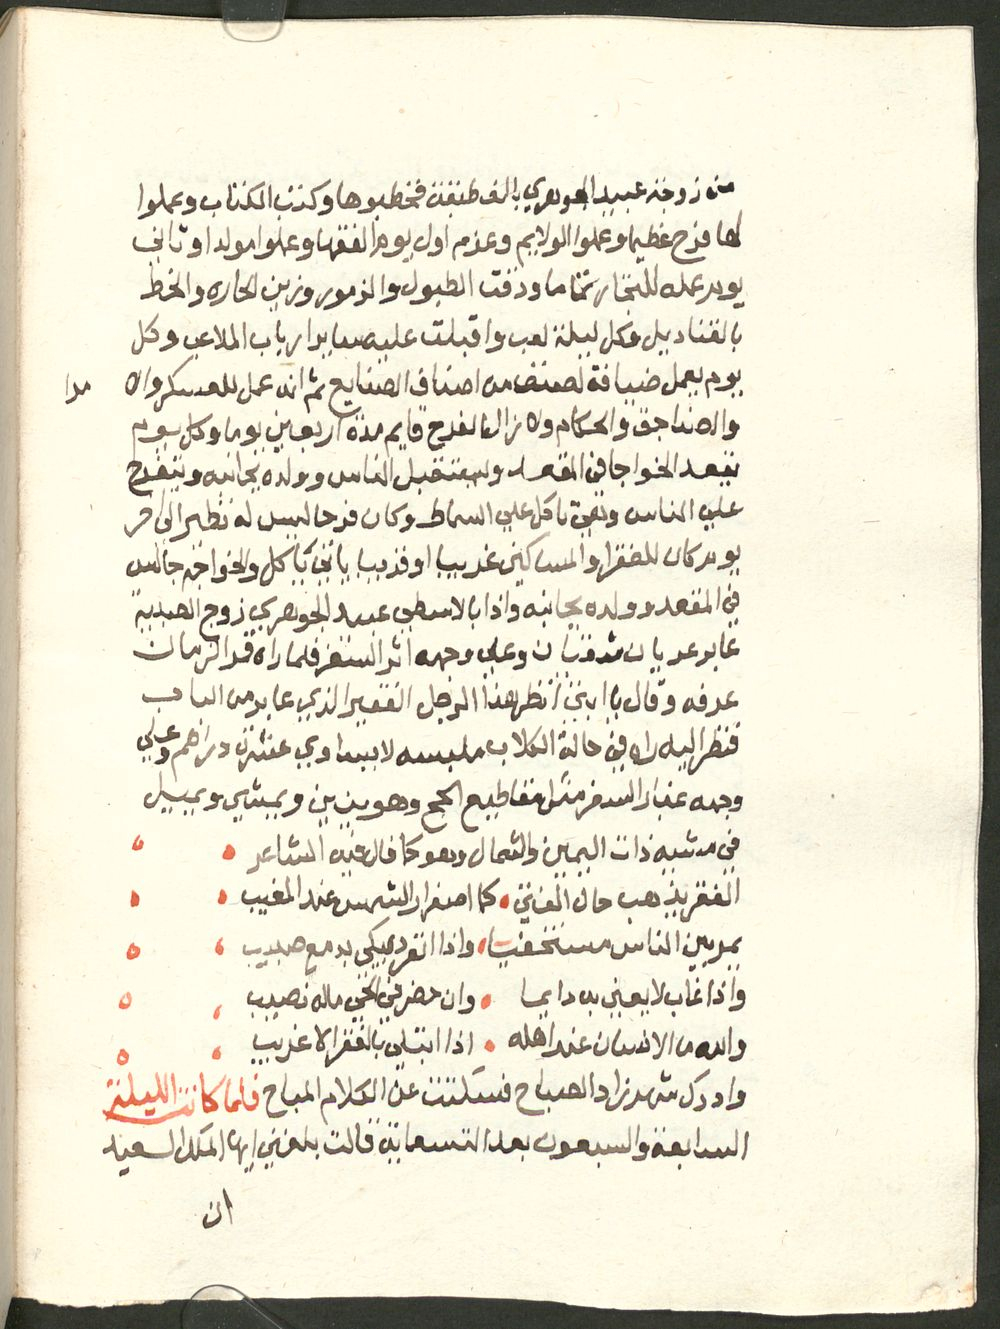 من زوجة عبيد الجوهري بالف طبقة فخطبوها وكتب الكتاب وعملوا
لها فرح عظيم وعملوا الولايم وعزم اول يوم الفقها وعملوا مولدا وثاني
يوم عمله للتجار تماما ودقت الطبول والزمور وزين الحاره والخط
بالقناديل وكل ليلة لعب واقبلت عليه ساير ارباب الملاعب وكل
يوم يعمل ضيافة لصنف من اصناف الصنايع ثم انه عمل للعسكر والا
مرا
والصناجق والحكام ولا زال الفرح قايم مدة اربعين يوما وكل يوم
يقعد الخواجا في المقعد ويستقبل الناس وولده بجانبه ويتفرج
علي الناس وبقي ياكل علي السماط وكان فرحا ليس له نظير الي اخر
يوم كان للفقرا والمساكين غريبا او قريبا ياتي ياكل والخواجه جالس
في المقعد وولده بجانبه واذا بالاسطي عبيد الجوهري زوج الصبية
عابر عريان شفتان وعلي وجهه اثر السفر فلما راه قمر الزمان
عرفه وقال يا ابتي انظر هذا الرجل الفقير الذي عابر من الباب
فنظر اليه راه في حالة الكلاب ملبسه لا يساوي عشرة دراهم وعلي
وجهه غبار السفر مثل مقاطيع الحج وهو ينين ويمشي ويميل
في مشيه ذات اليمين والشمال وهو كما قال فيه الشاعر
الفقر يذهب حال الغني كما اصفرار الشمس عند المغيب
يمر بين الناس مستخفيا واذا انفرد يبكي بدمع صبيب
واذا غاب لا يعني به دايما وان حضر في الحي ماله نصيب
والله ما الانسان عند اهله اذا ابتلي بالفقر الا غريب
وادرك شهرزاد الصباح فسكتت عن الكلام المباح فلما كانت الليلة
السابعة والسبعون بعد التسعماية قالت بلغني ايها الملك السعيد
ان